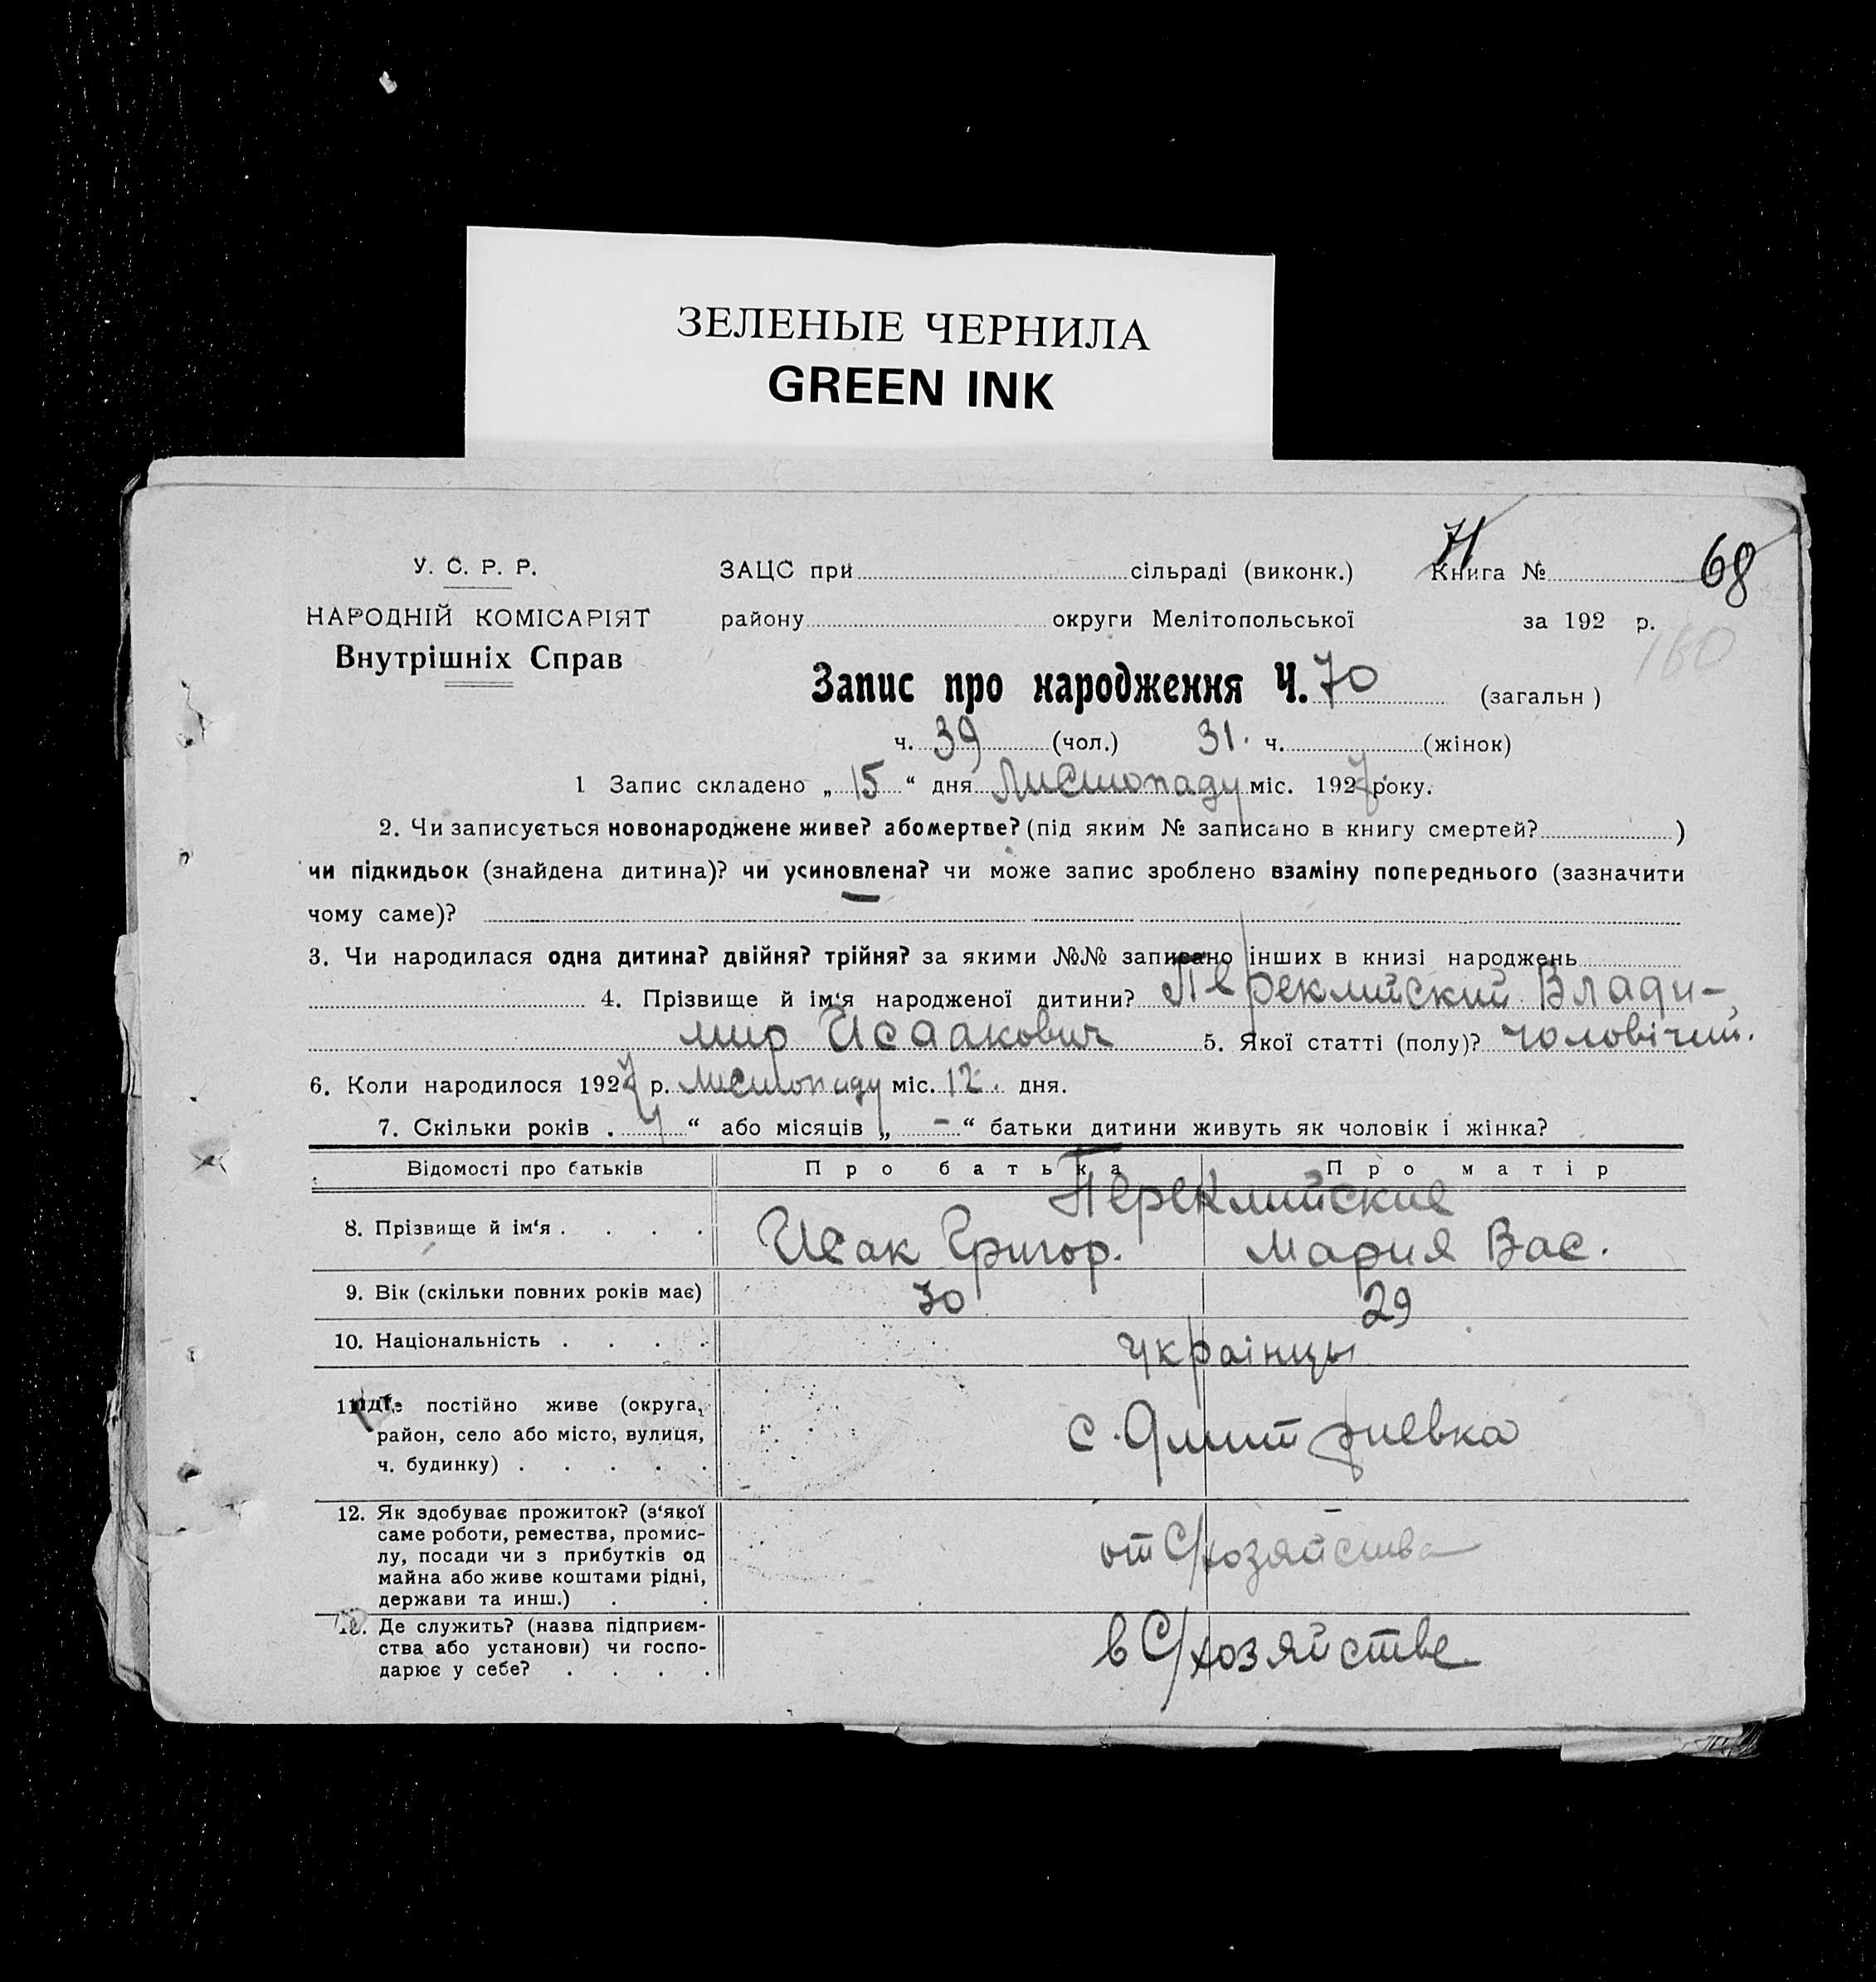 ЗЕЛЕНЫЕ ЧЕРНИЛА
GREEN INK
У. С. Р. Р.
НАРОДНІЙ КОМІСАРІЯТ
Внутрішніх Справ
ЗАЦС при сільраді (виконк.) Книга № 68
71
району округи Мелітопольської за 192 р.
160
Запис про народження Ч. 70 (загальн)
ч. 39 (чол.) 31. ч. (жінок)
1 Запис складено „15“ дня Листопаду міс. 1927 року.
2. Чи записується новонароджене живе? або мертве? (під яким № записано в книгу смертей? )
чи підкидьок (знайдена дитина)? чи усиновлена? чи може запис зроблено взаміну попереднього (зазначити
чому саме)?
3. Чи народилася одна дитина? двійня? трійня? за якими №№ записано інших в книзі народжень
4. Прізвище й ім‘я народженої дитини? Переклийский Влади-
мир Исаакович 5. Якої статті (полу)? чоловічий.
6. Коли народилося 1927 р. листопаду міс. 12. дня.
7. Скільки років . 4 “ або місяців „ - “ батьки дитини живуть як чоловік і жінка?
Відомості про батьків Про батька Про матір
Переклийские
8. Прізвище й ім‘я . . . . Исак Григор. Мария Вас.
9. Вік (скільки повних років має) 30 29
10. Національність . . . . українцы
11. Де постійно живе (округа,
район, село або місто, вулиця,
ч. будинку) . . . . .
с. Дмитриевка
12. Як здобуває прожиток? (з‘якої
саме роботи, ремества, промис-
лу, посади чи з прибутків од
майна або живе коштами рідні,
держави та инш.) . .
от С/хозяйства
13. Де служить? (назва підприєм-
ства або установи) чи госпо-
дарює у себе? . . . .
в С/хозяйстве.